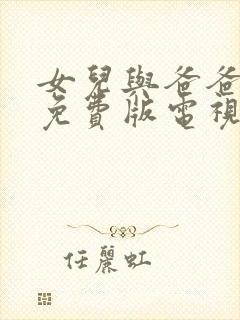 女兒與爸爸
免費版電視
任麗虹